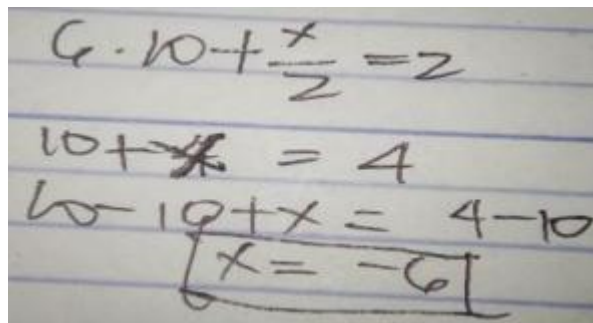 6. 10 + x/2 = 2
10 + x = 4
10 - 10 + x = 4 - 10
x = -6